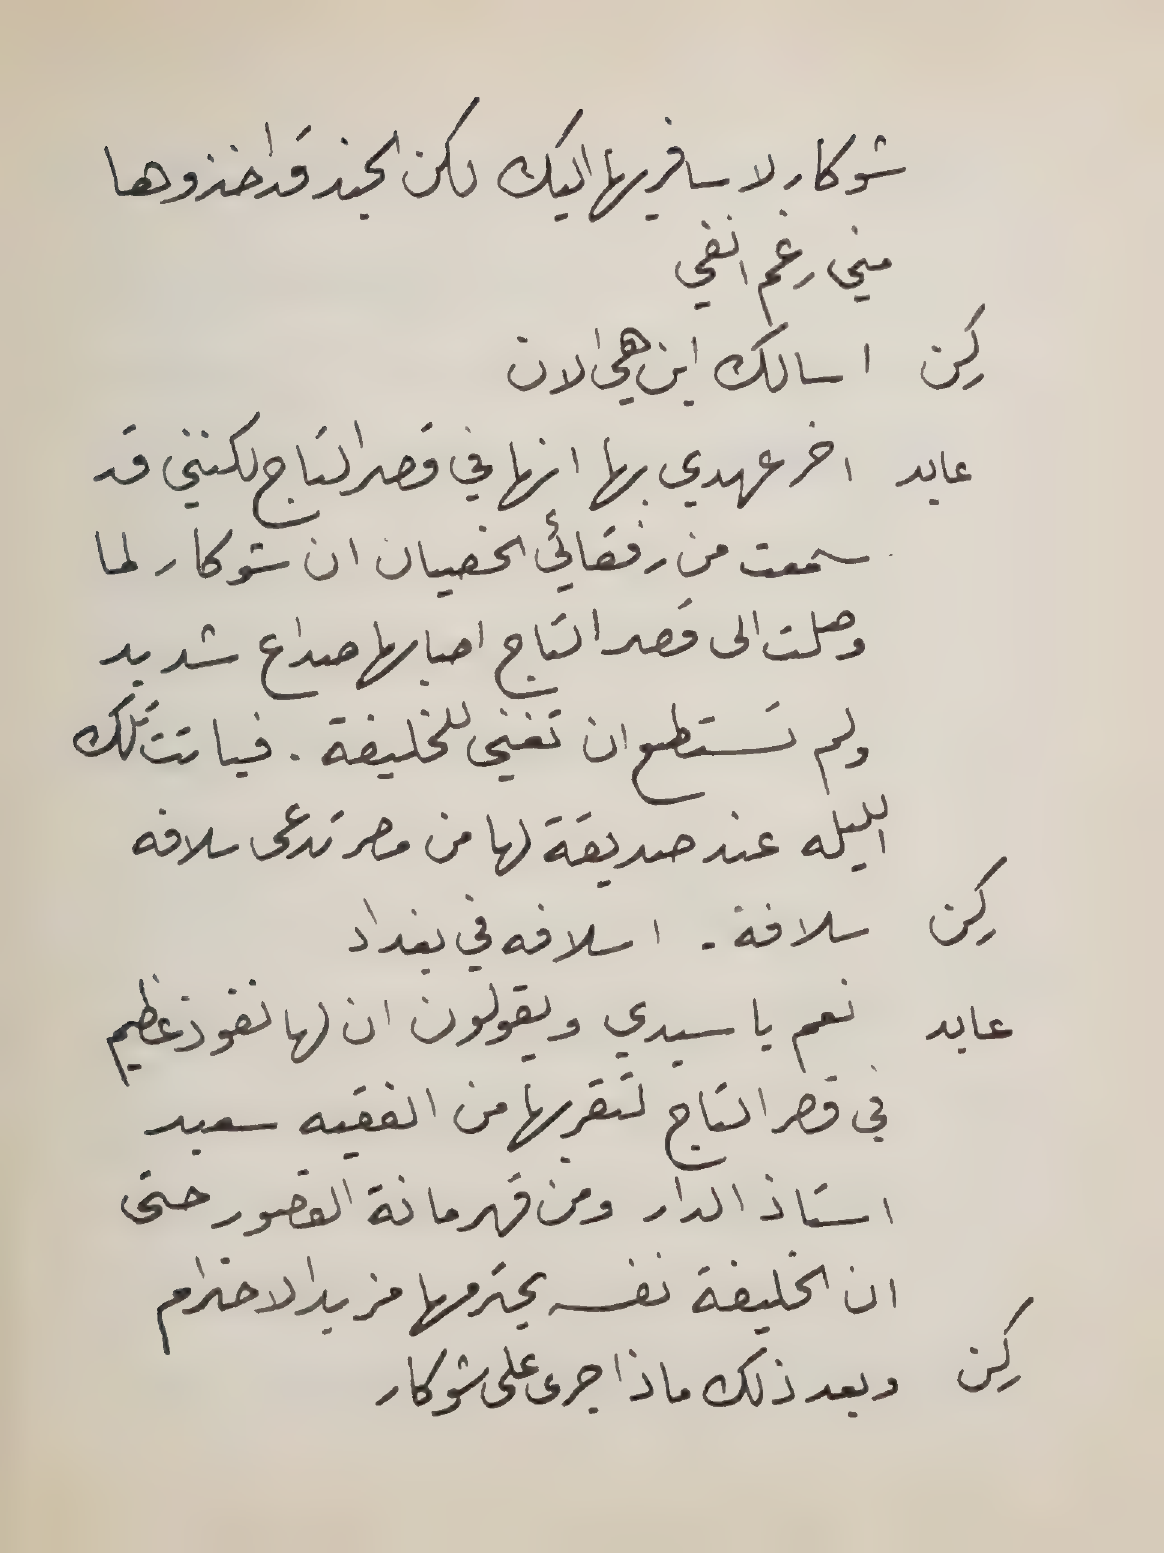 شوكار لا سافر بها اليك لكن الجند قد اخذوها
مني رغم انفي
ركن ا سالك اين هي الان
عابد اخر عهدي بها انها في قصر التاج لكنني قد
سمعت من رفقائي الخصيان ان شوكار لما
وصلت الى قصر التاج اصابها صداع شديد
ولم تستطع ان تغني للخليفة . فباتت تلك
الليله عند صديقة لها من مصر تدعى سلافه
ركن سلافة . ا سلافه في بغداد
عابد نعم يا سيدي ويقولون ان لها نفوذ عظيم
في قصر التاج لتقربها من الفقيه سعيد
استاذ الدار ومن قهرمانة القصور حتى
ان الخليفة نفسه يحترمها مزيد الاحترام
ركن وبعد ذلك ماذا جرى على شوكار